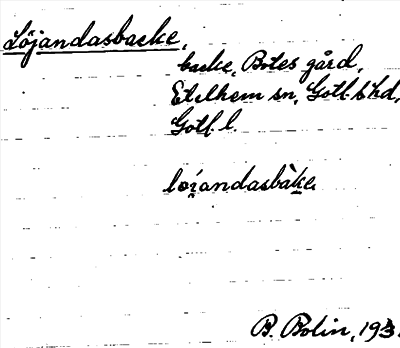 Löjandasbacke,
backe, Botes gård,
Etelhem sn, Gotl. hd,
Gotl. l.
B. Bolin, 193